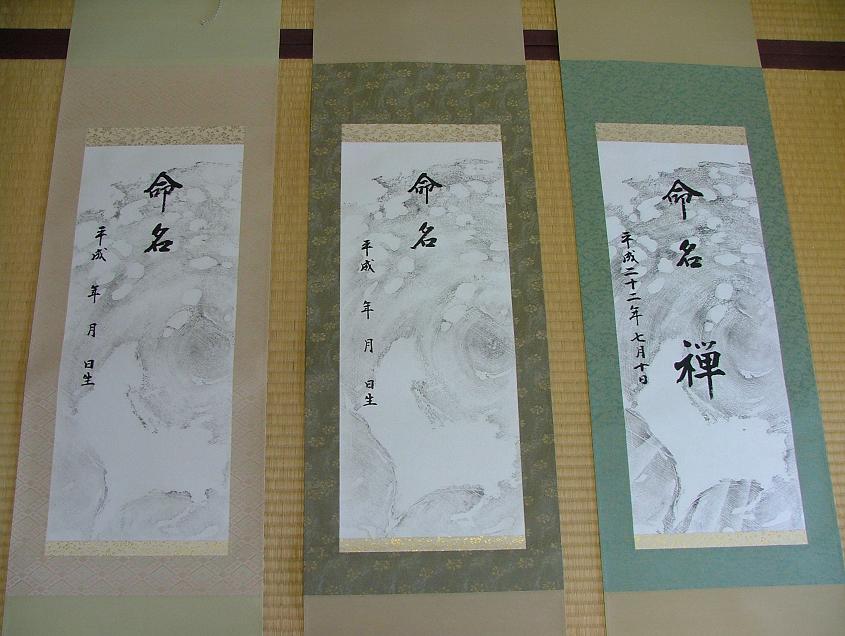 命名
平成 年 月 日生
命名
平成 年 月 日生
命名 禅
平成二十二年七月十日